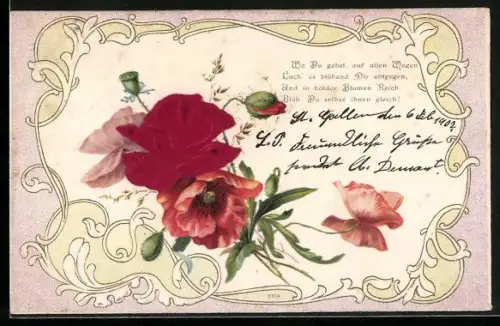 Wo Du gehst, auf allen Wegen
Lach' es blühend Dir entgegen,
Und in holder Blumen Reich
Blüh' Du selber ihnen gleich!
St. Gallen den 6 Feb. 1902
L. P. Freundliche Grüße
sendet